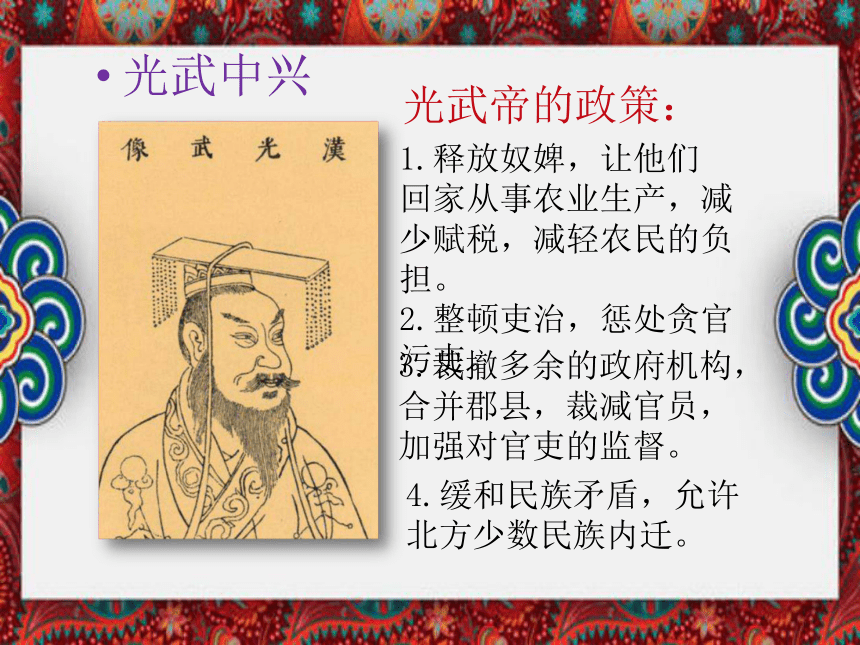 • 光武中兴
光武帝的政策：
像 武 光 漢
1.释放奴婢，让他们
回家从事农业生产，减
少赋税，减轻农民的负
担。
2.整顿吏治，惩处贪官
污吏。
3.裁撤多余的政府机构，
合并郡县，裁减官员，
加强对官吏的监督。
4.缓和民族矛盾，允许
北方少数民族内迁。